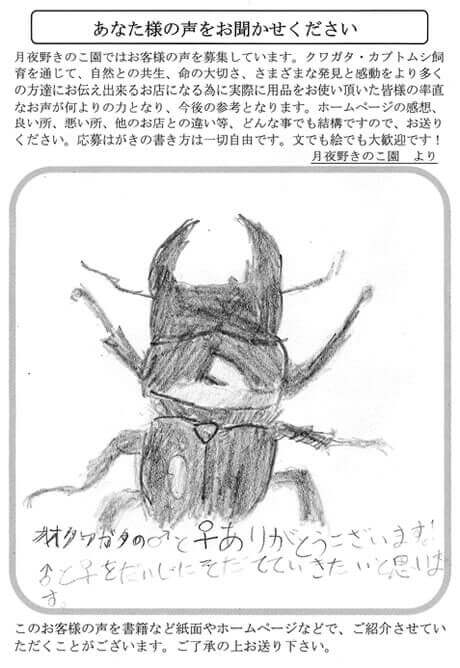 あなた様の声をお聞かせください
月夜野きのこ園ではお客様の声を募集しています。クワガタ・カブトムシ飼
育を通じて、自然との共生、命の大切さ、さまざまな発見と感動をより多く
の方達にお伝え出来るお店になる為に実際に用品をお使い頂いた皆様の率直
なお声が何よりの力となり、今後の参考となります。ホームページの感想、
良い所、悪い所、他のお店との違い等、どんな事でも結構ですので、お送り
ください。応募はがきの書き方は一切自由です。文でも絵でも大歓迎です！
月夜野きのこ園　より
クワガタの♂と♀ありがとうございます!
♂と子をだいじにそだてていきたいと思いま
す。
このお客様の声を書籍など紙面やホームページなどで、ご紹介させてい
ただくことがございます。ご了承の上お送り下さい。